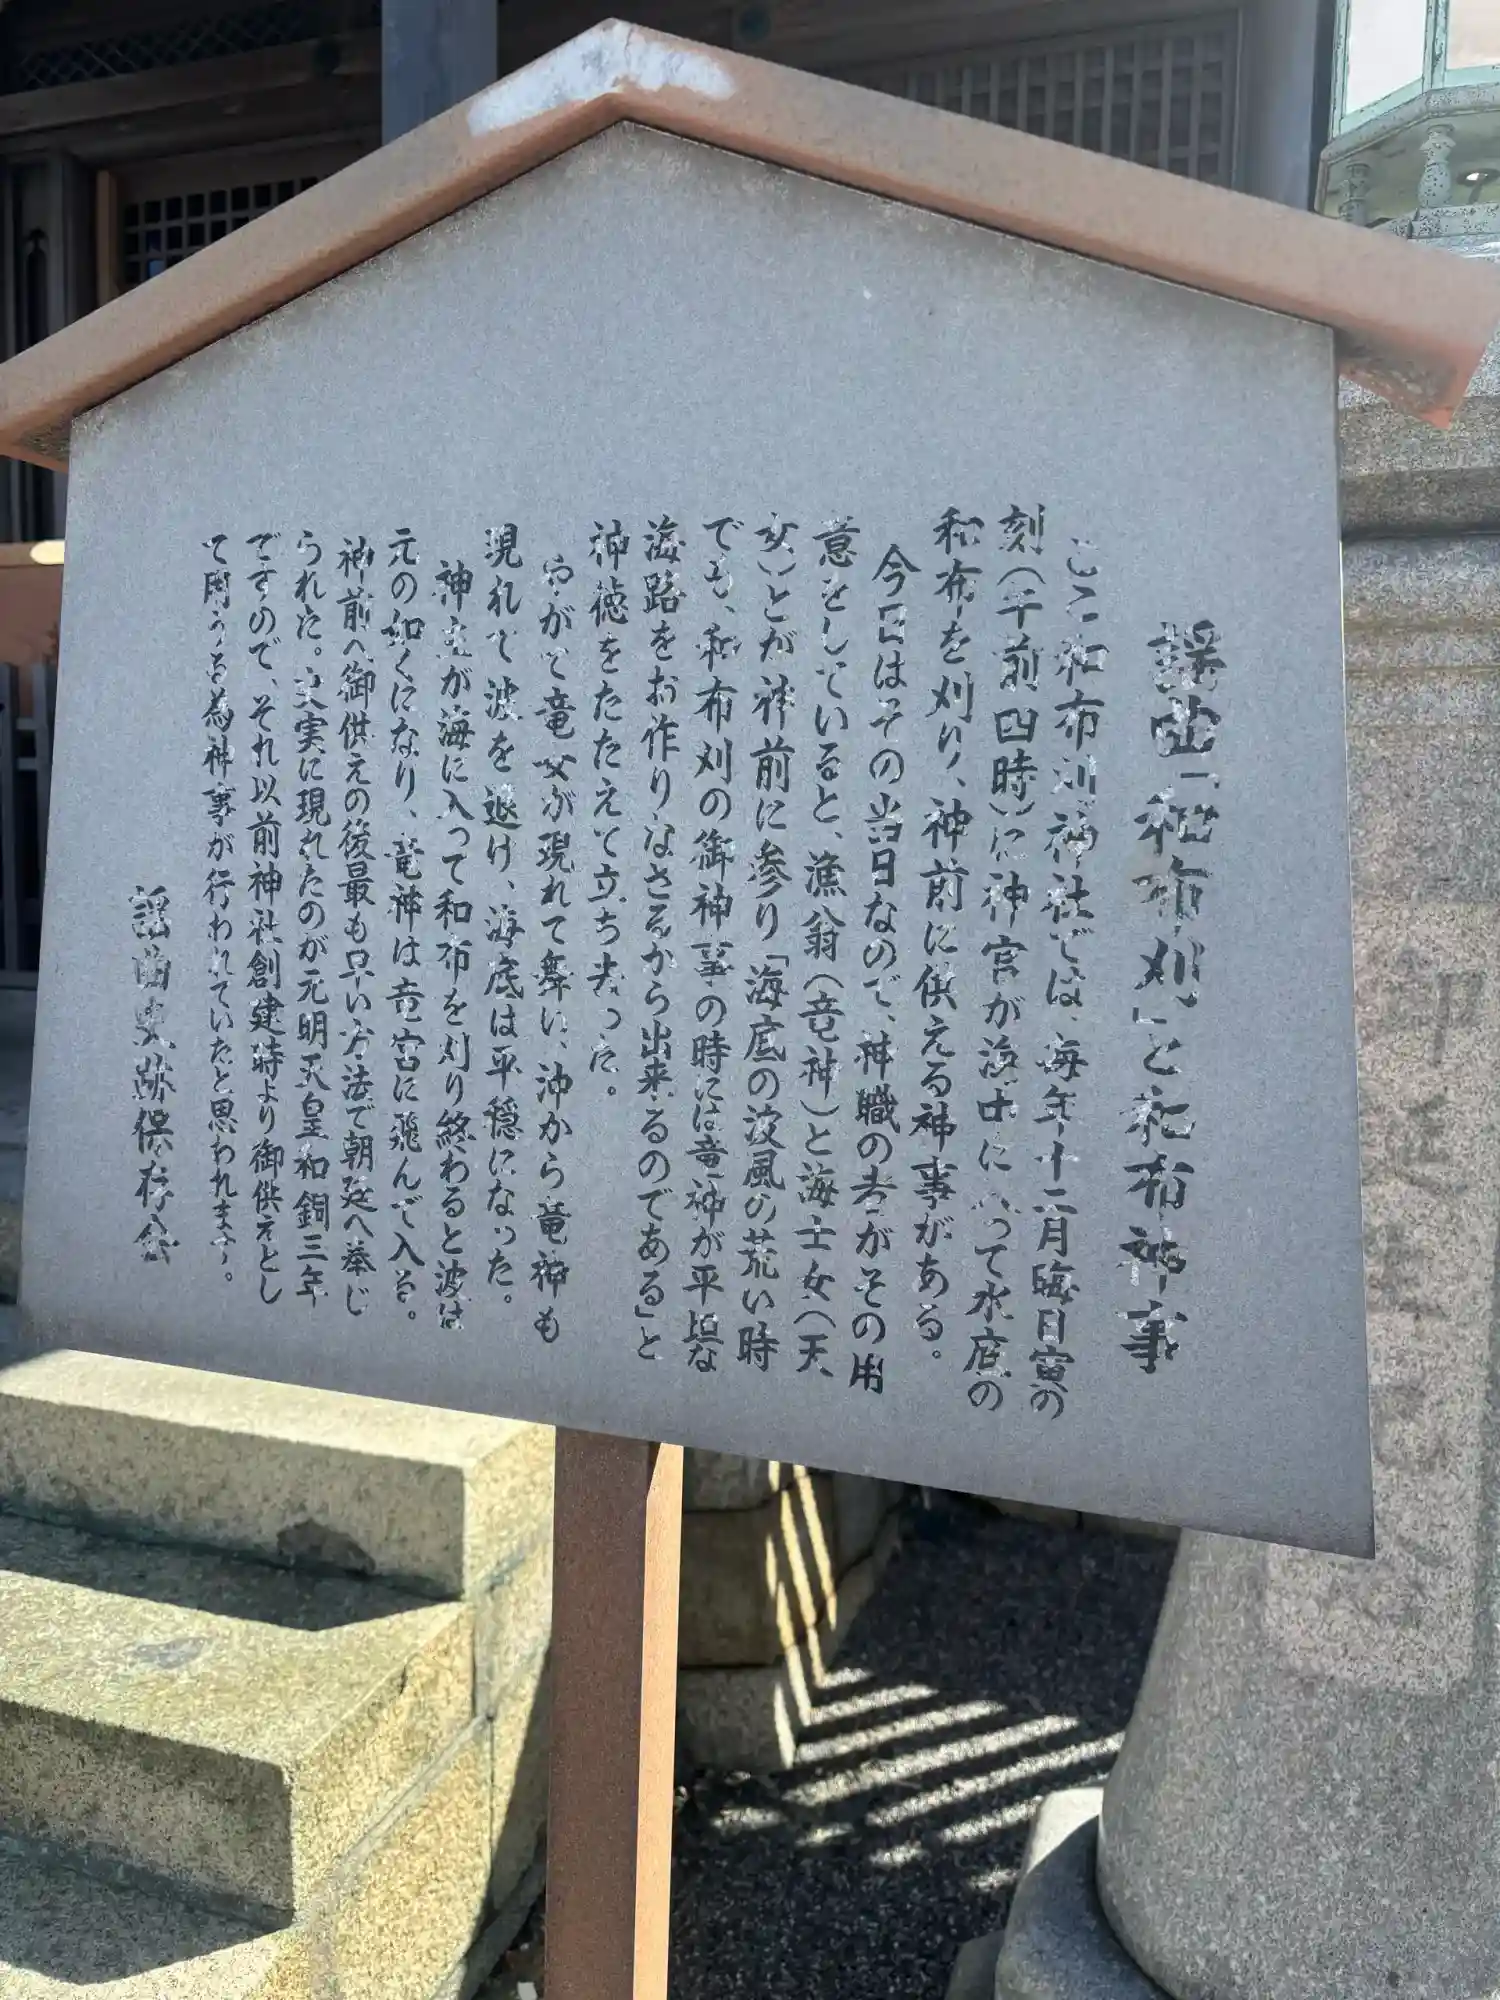 謡曲「和布刈」と和布神事
ここ和布刈神社では、毎年十二月晦日寅の
刻(午前四時)に神官が海中に入って水底の
和布を刈り、神前に供える神事がある。
今日はその当日なので、神職の者がその用
意をしていると、漁翁(竜神)と海士女(天
女)とが神前に参り「海底の波風の荒い時
でも、和布刈の御神事の時には竜神が平坦な
海路をお作りなさるから出来るのである」と
神徳をたたえて立ち去った。
やがて竜女が現れて舞い、沖から竜神も
現れて波を退け、海底は平穏になった。
神主が海に入って和布を刈り終わると波は
元の如くになり、竜神は竜宮に飛んで入る。
神前へ御供えの後最も早い方法で朝廷へ奉じ
られた。史実に現れたのが元明天皇和銅三年
ですので、それ以前神社創建時より御供えとし
て用うる為神事が行われていたと思われます。
謡曲史跡保存会